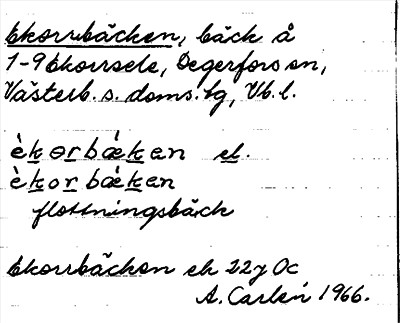 Ekorrbäcken, bäck å
1-9 Ekorrsele, Degerfors sn,
Västerb. s. doms. lg, Vb. l.
èkorbǽkan el.
èkorbǽkan
flottningsbäck
Ekorrbäcken ek 22y Oc
A. Carlén 1966.